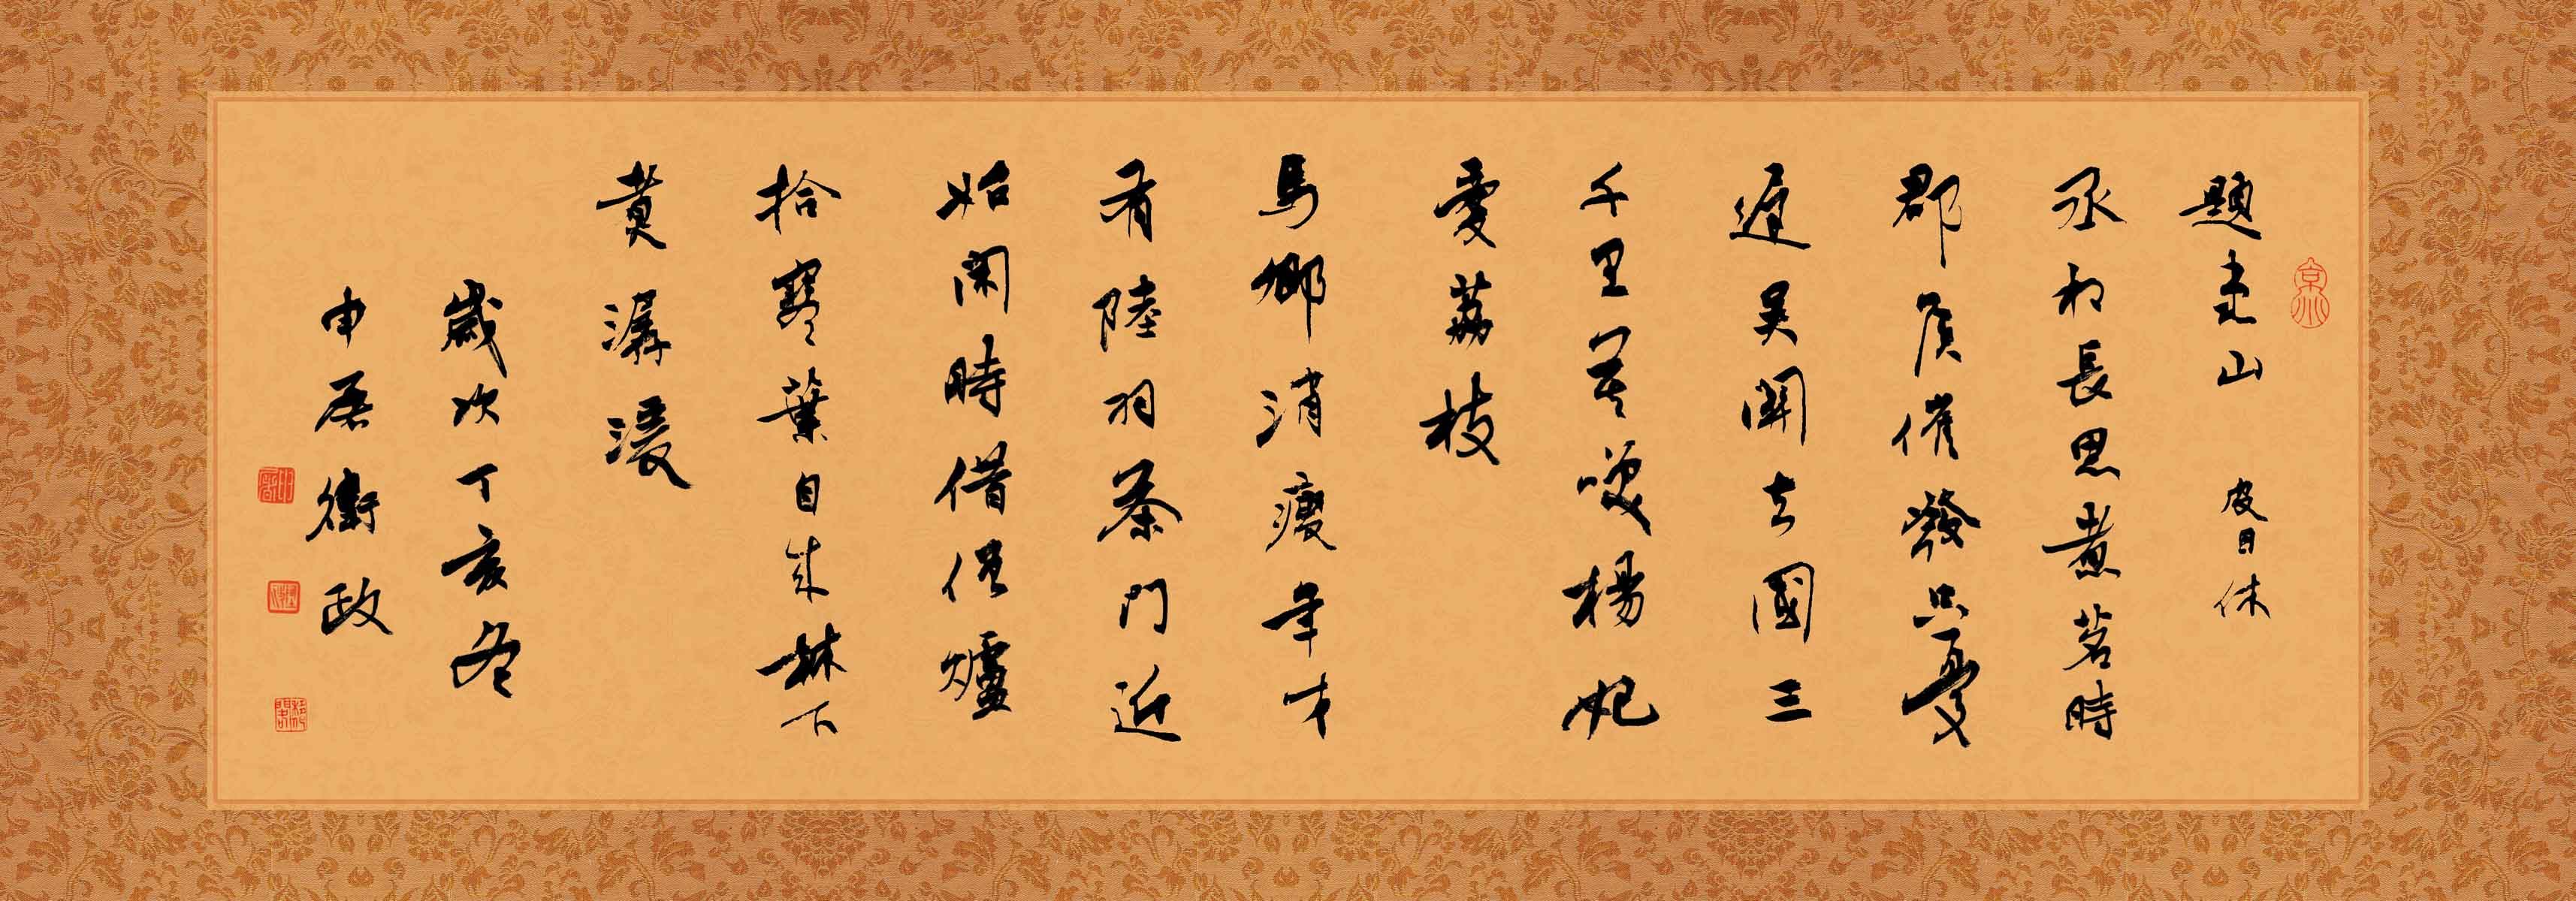 題惠山 皮日休
丞相長思煮茗時
郡侯催發只憂
遲吳關去國三
千里莫笑楊妃
愛荔枝
馬卿消瘦年才
有陸羽茶門近
始閑時借僧爐
拾寒葉自來林下
煑潺湲
歲次丁亥冬
申屠衛政
京川